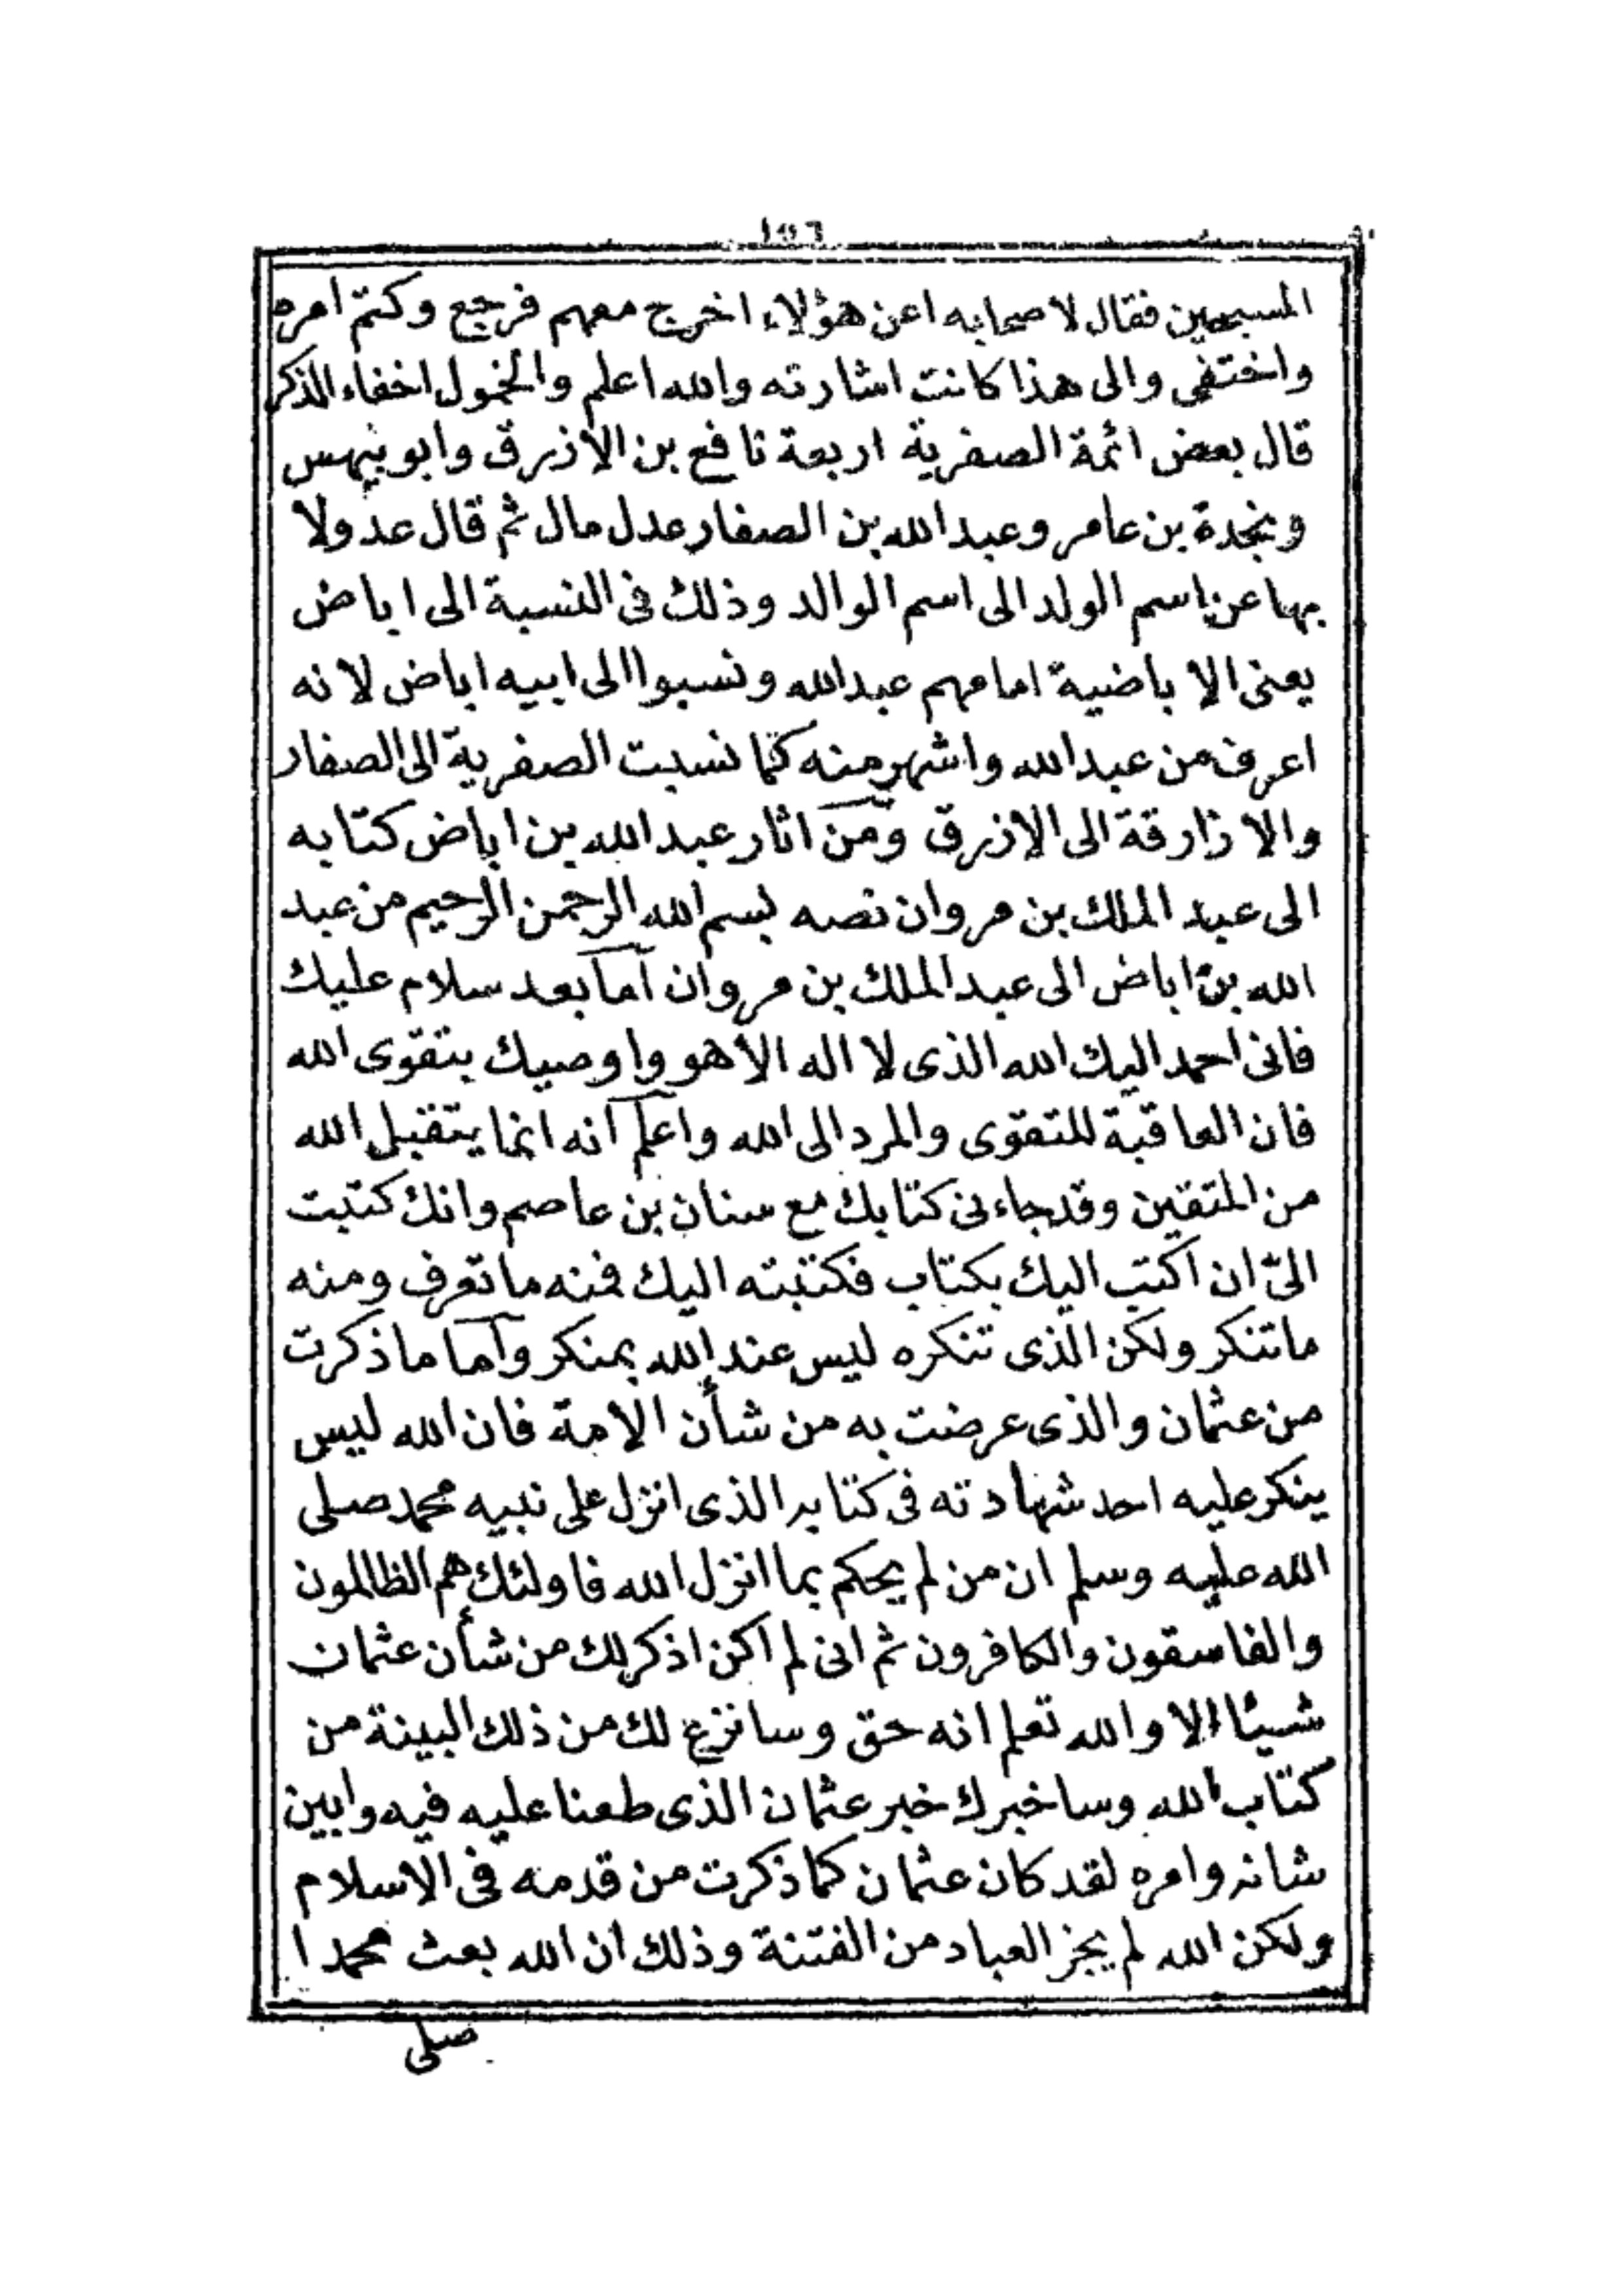 ١٥٦
المسبحين فقال لاصحابه اعن هؤلاء اخرج معهم فرجع وكتم امره
واختفى والى هذا كانت اشارته والله اعلم والخمول اخفاء الذكر
قال بعض ائمة الصفرية اربعة نافع بن الازرق وابو بيهس
ونجدة بن عامر وعبد الله بن الصفار عدل مال ثم قال عدولا
بها عن اسم الولد الى اسم الوالد وذلك فى النسبة الى اباض
يعنى الاباضية امامهم عبد الله ونسبوا الى ابيه اباض لانه
اعرف من عبد الله واشهر منه كما نسبت الصفرية الى الصفار
والازارقة الى الازرق ومن اثار عبد الله بن اباض كتابه
الى عبد الملك بن مروان نصه بسم الله الرحمن الرحيم من عبد
الله بن اباض الى عبد الملك بن مروان اما بعد سلام عليك
فانى احمد اليك الله الذى لا اله الا هو واوصيك بتقوى الله
فان العاقبة للتقوى والمرد الى الله واعلم انه انما يتقبل الله
من المتقين وقد جاءنى كتابك مع سنان بن عاصم وانك كتبت
الىّ ان اكتب اليك بكتاب فكتبته اليك فمنه ما تعرف ومنه
ما تنكر ولكن الذى تنكره ليس عند الله بمنكر واما ما ذكرت
من عثمان والذى عرضت به من شأن الامة فان الله ليس
ينكر عليه احد شهادته فى كتابه الذى انزل على نبيه محمد صلى
الله عليه وسلم ان من لم يحكم بما انزل الله فاولئك هم الظالمون
والفاسقون والكافرون ثم انى لم اكن اذكر لك من شأن عثمان
شيئا الا والله تعلم انه حق وسانزع لك من ذلك البينة من
كتاب الله وساخبرك خبر عثمان الذى طعنا عليه فيه وابين
شانه وامره لقد كان عثمان كما ذكرت من قدمه فى الاسلام
ولكن الله لم يجز العباد من الفتنة وذلك ان الله بعث محمدا
صلى